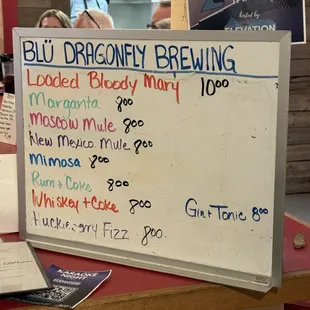 BLÜ DRAGONFLY BREWING
Loaded Bloody Mary 10⁰⁰
Margarita 8⁰⁰
Moscow Mule 8⁰⁰
New Mexico Mule 8⁰⁰
Mimosa 8⁰⁰
Rum + Coke 8⁰⁰
Whiskey + Coke 8⁰⁰
Gin + Tonic 8⁰⁰
Huckleberry Fizz 8⁰⁰
hosted by
ELEVATION
KARAOKE
NIGHT